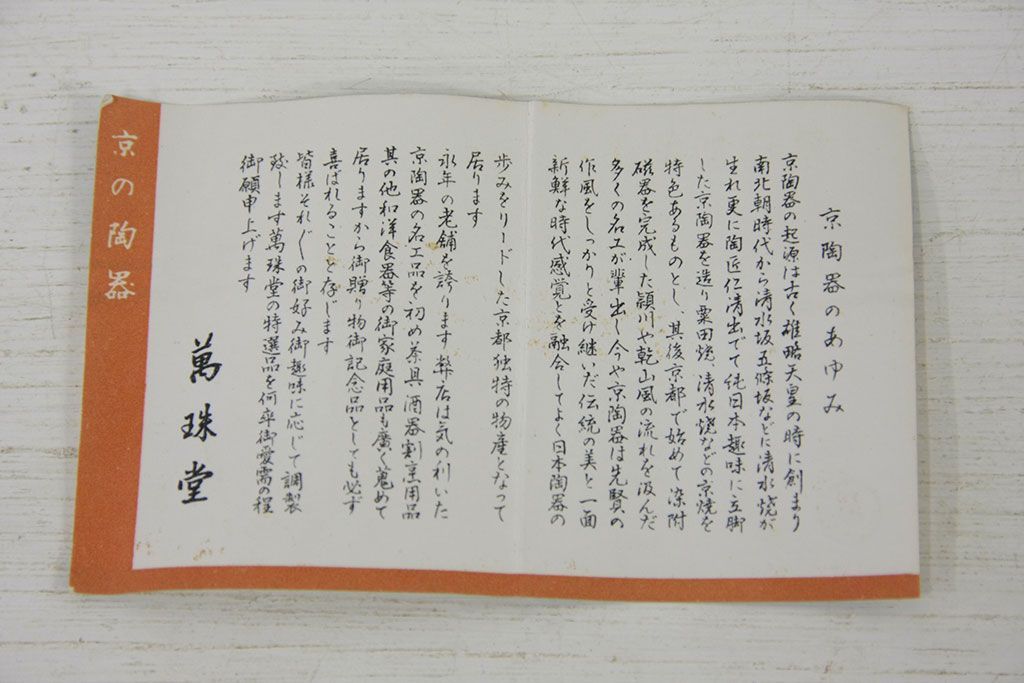 京陶器のあゆみ
京陶器の起源は古く雄略天皇の時に創まり
南北朝時代から清水坂五條坂などに清水焼が
生れ更に陶匠仁清出でて純日本趣味に立脚
した京陶器を造り粟田焼、清水焼などの京焼を
特色あるものとし、其後京都で始めて染附
磁器を完成した頴川や乾山風の流れを汲んだ
多くの名工が輩出し今や京陶器は先賢の
作風をしっかりと受け継いだ伝統の美と一面
新鮮な時代感覚とを融合してよく日本陶器の
歩みをリードした京都独特の物産となって
居ります
永年の老舗を誇ります弊店は気の利いた
京陶器の名工品を初め茶具酒器割烹用品
其の他和洋食器等の御家庭用品も廣く蒐めて
居りますから御贈り物御記念品としても必ず
喜ばれることと存じます
皆様それ〲の御好み御趣味に応じて調製
致します萬珠堂の特選品を何卆御愛需の程
御願申上げます
萬珠堂
京の陶器